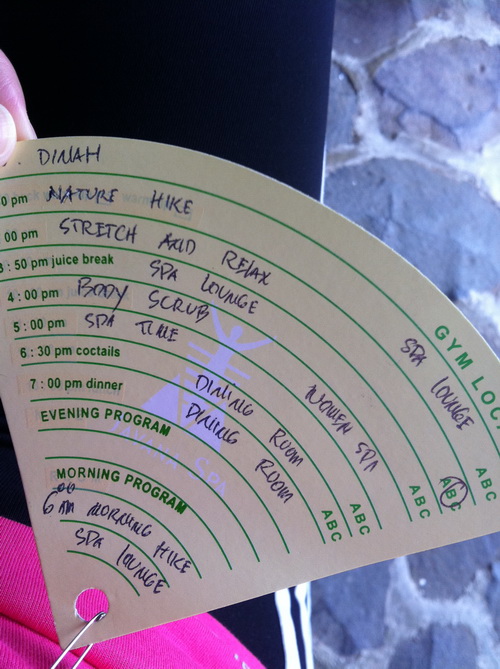 DINAH
0 pm NATURE HIKE
00 pm STRETCH AND RELAX
3 : 50 pm juice break SPA LOUNGE
4 : 00 pm BODY SCRUB
5 : 00 pm SPA TIME
6 : 30 pm coctails DINING ROOM
7 : 00 pm dinner DINING ROOM
EVENING PROGRAM
MORNING PROGRAM
6 AM MORNING HIKE
SPA LOUNGE
GYM LOC
SPA LOUNGE
WOMEN SPA
A B C
A B C
A B C
A B C
A B C
JAVANA SPA